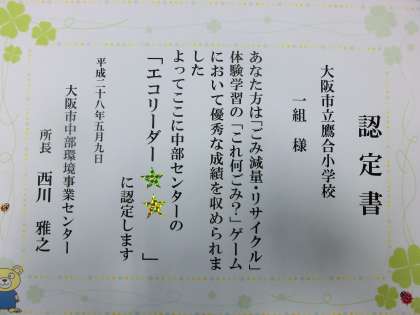 認定書
大阪市立鷹合小学校
一組 様
あなた方は「ごみ減量・リサイクル」
体験学習の「これ何ごみ？」ゲーム
において優秀な成績を収められま
した
よってここに中部センターの
「エコリーダー☆☆」
に認定します
平成二十八年五月九日
大阪市中部環境事業センター
所長 西川 雅之